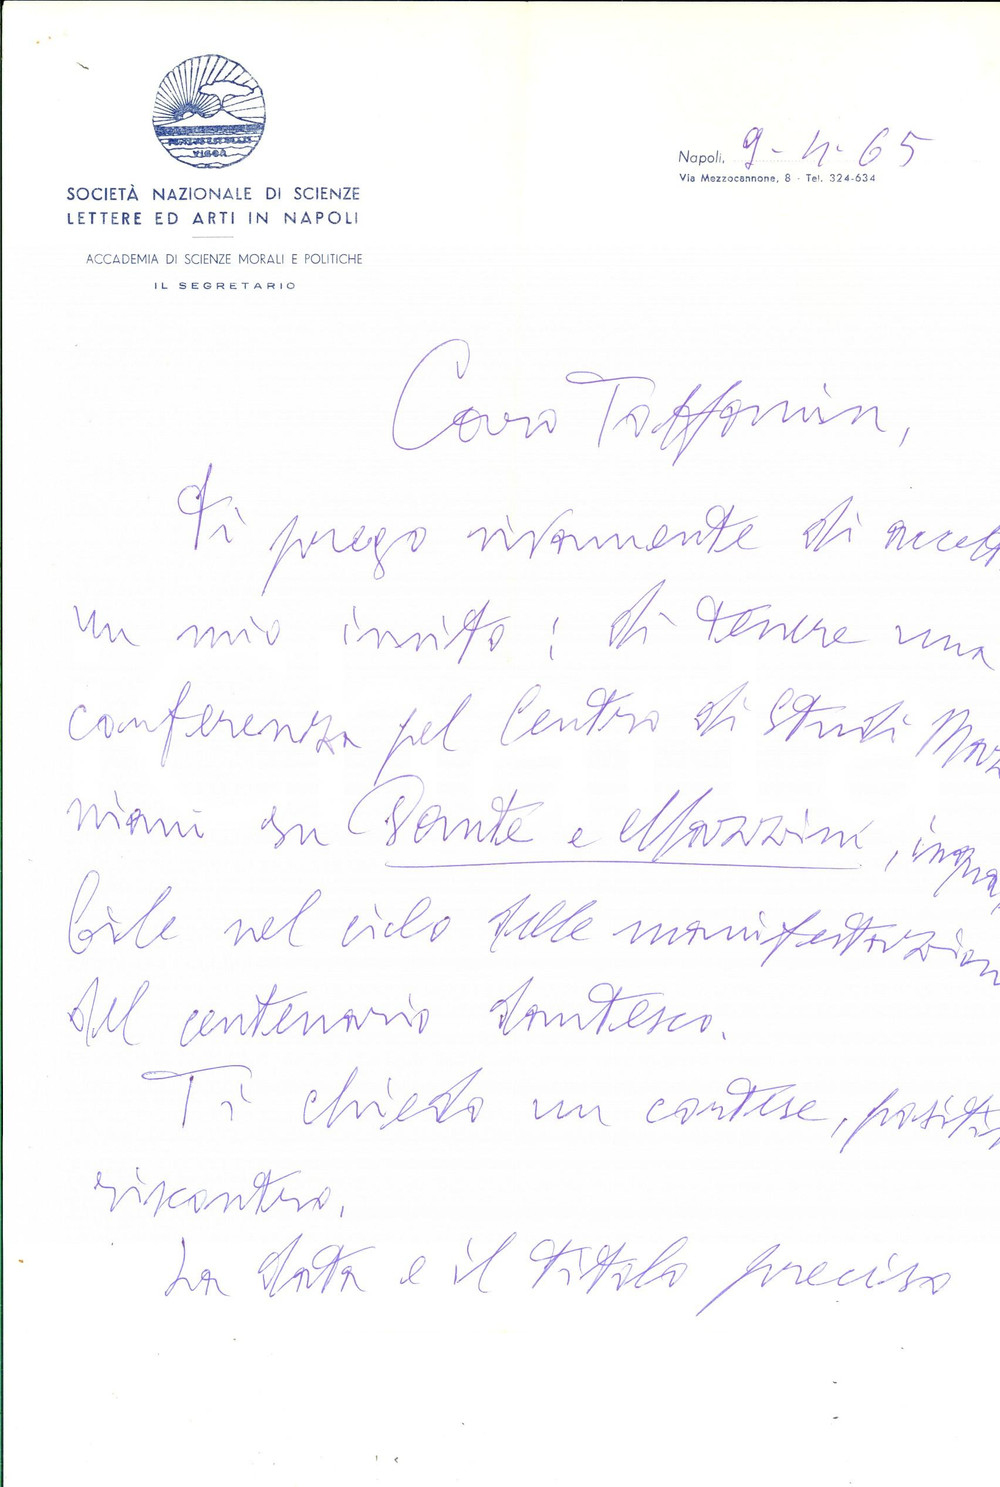 SOCIETÀ NAZIONALE DI SCIENZE
LETTERE ED ARTI IN NAPOLI
ACCADEMIA DI SCIENZE MORALI E POLITICHE
IL SEGRETARIO
Napoli, 9-4-65
Via Mezzocannone, 8 - Tel. 324-634
Caro Toffanin,
Ti prego vivamente di accett
un mio invito: di tenere una
conferenza pel Centro di Studi Maz
niani su Dante e Mazzini, inqua
bile nel ciclo delle manifestazion
del centenario dantesco.
Ti chiedo un cortese, positiv
riscontro.
La data e il titolo preciso